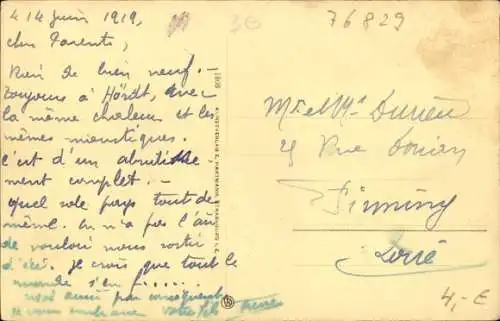 14 juin 1919,
chers Parents,
Rien de bien neuf.
Toujours à Hördt, avec
la même chaleur et les
mêmes moustiques.
C'est d'un abrutisse
ment complet. -
quel sale pays tout de
même. On n'a pas l'air
de vouloir nous sortir
d'ici. Je crois que tout le
monde s'en f......
nous aussi par conséquent
Je vous embrasse votre fils
76829
Mr et Mme Durieu
Rue
Firminy
Loire
4,- €